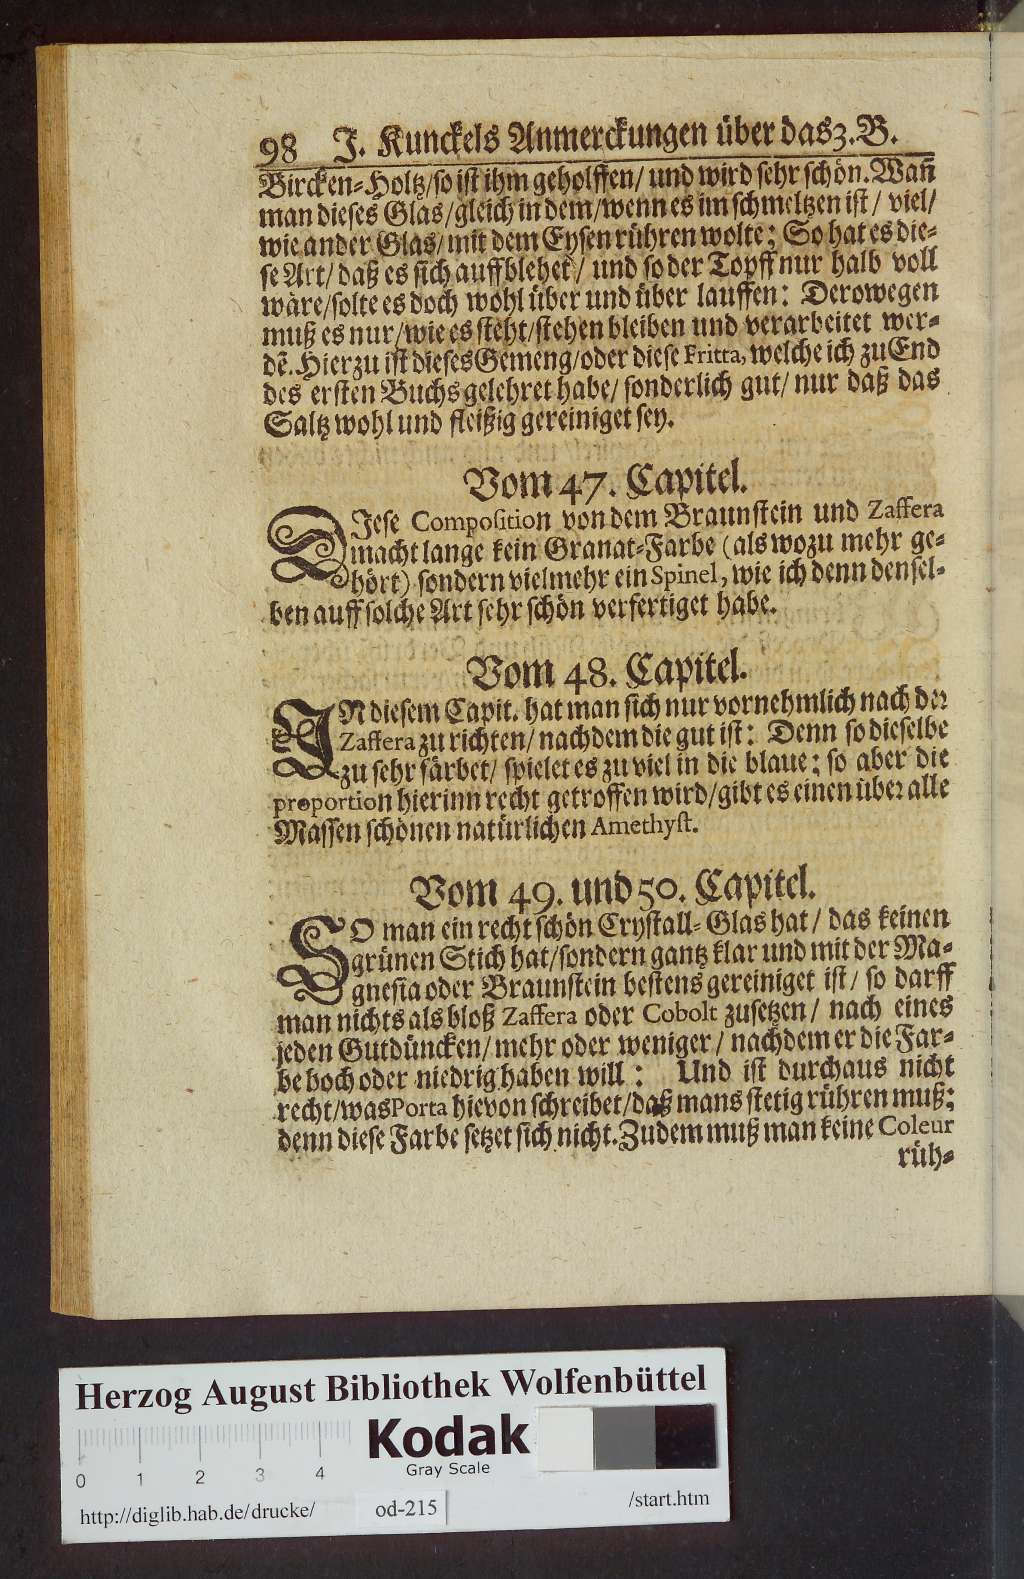 98 J. Kunckels Anmerckungen über das 3. B.
Bircken-Holtz/so ist ihm geholffen/ und wird sehr schön. Wañ
man dieses Glas/gleich in dem/wenn es im schmeltzen ist/ viel/
wie ander Glas/mit dem Eysen rühren wolte; So hat es die-
se Art/ daß es sich auffblehet/ und so der Topff nur halb voll
wäre/solte es doch wohl über und über lauffen: Derowegen
muß es nur/wie es steht/stehen bleiben und verarbeitet wer-
dẽ. Hierzu ist dieses Gemeng/oder diese Fritta, welche ich zu End
des ersten Buchs gelehret habe/ sonderlich gut/ nur daß das
Saltz wohl und fleißig gereiniget sey.
Vom 47. Capitel.
DJese Composition von dem Braunstein und Zaffera
macht lange kein Granat-Farbe (als wozu mehr ge-
hört) sondern vielmehr ein Spinel, wie ich denn densel-
ben auff solche Art sehr schön verfertiget habe.
Vom 48. Capitel.
JN diesem Capit. hat man sich nur vornehmlich nach der
Zaffera zu richten/ nachdem die gut ist: Denn so dieselbe
zu sehr färbet/ spielet es zu viel in die blaue; so aber die
proportion hierinn recht getroffen wird/gibt es einen über alle
Massen schönen natürlichen Amethyst.
Vom 49. und 50. Capitel.
SO man ein recht schön Crystall-Glas hat/ das keinen
grünen Stich hat/sondern gantz klar und mit der Ma-
gnesia oder Braunstein bestens gereiniget ist/ so darff
man nichts als bloß Zaffera oder Cobolt zusetzen/ nach eines
jeden Gutdüncken/ mehr oder weniger/ nachdem er die Far-
be hoch oder niedrig haben will: Und ist durchaus nicht
recht/was Porta hievon schreibet/daß mans stetig rühren muß;
denn diese Farbe setzet sich nicht. Zudem muß man keine Coleur
rüh-
Herzog August Bibliothek Wolfenbüttel
Kodak
Gray Scale
0 1 2 3 4
http://diglib.hab.de/drucke/ od-215 /start.htm